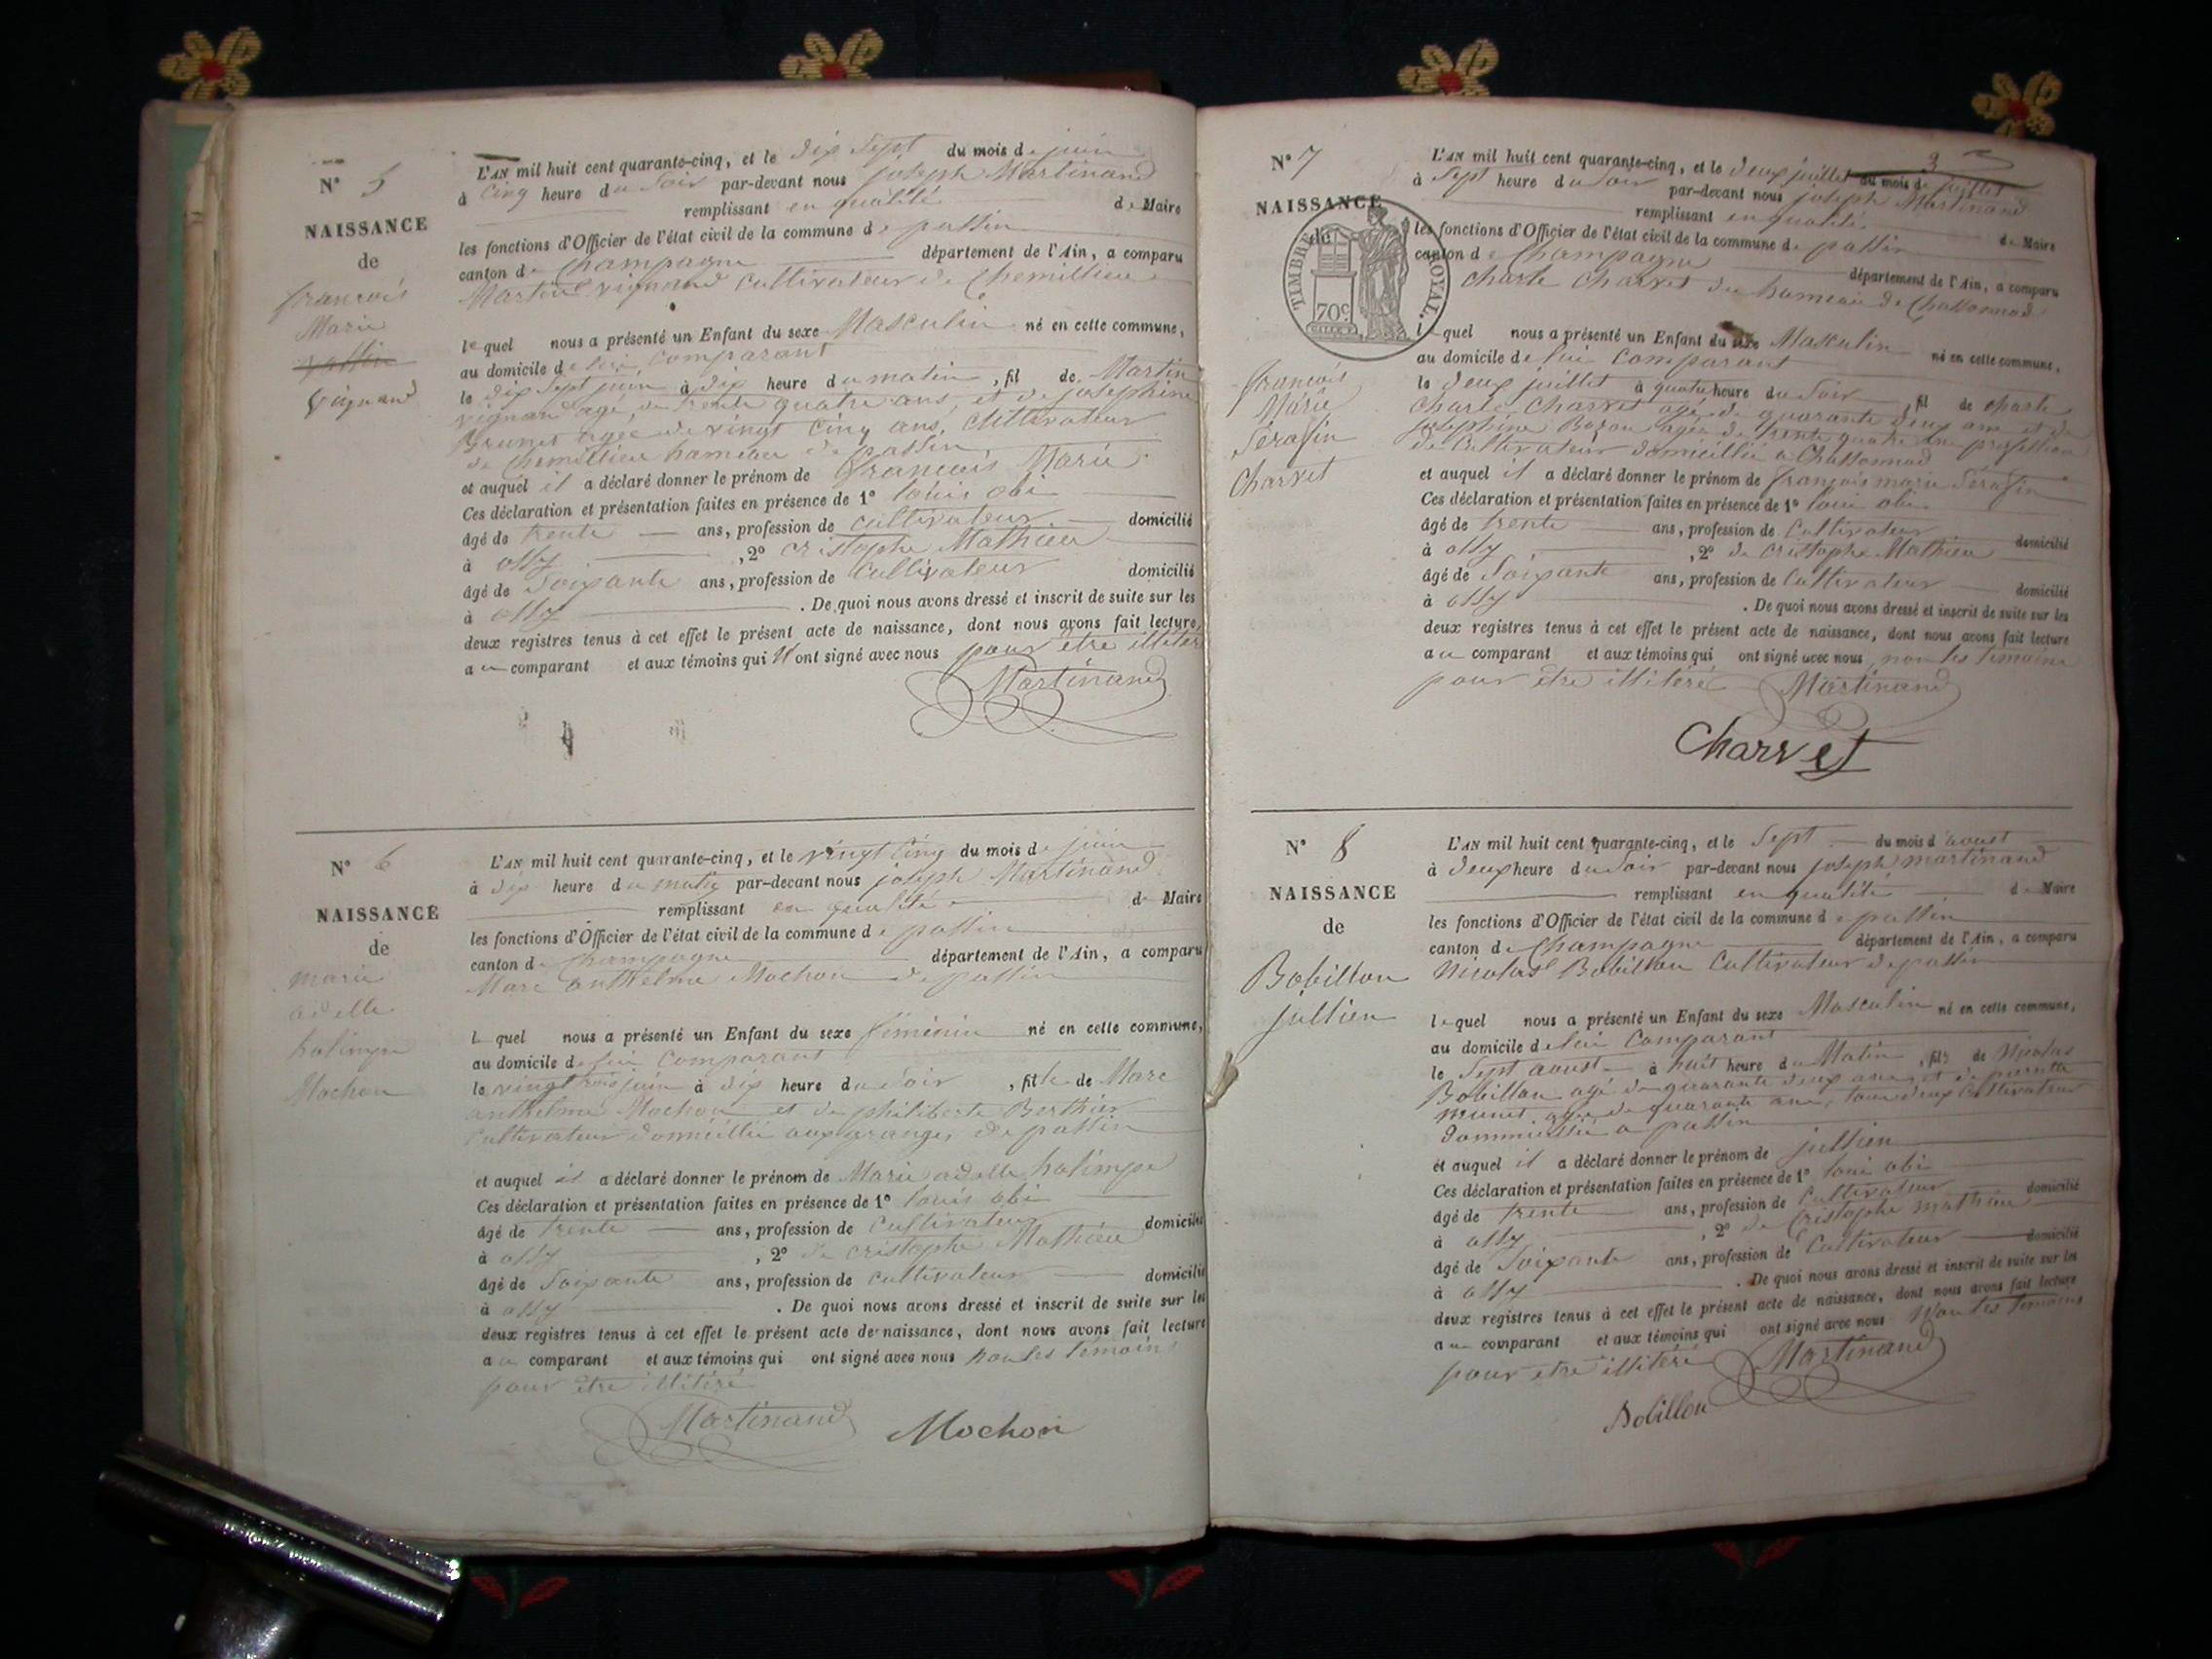 N° 5
NAISSANCE
de
francois
Marie
vignand
L'AN mil huit cent quarante-cinq, et le dix sept du mois de juin
à cinq heure du soir par-devant nous joseph Martinand
remplissant en qualité de Maire
les fonctions d'Officier de l'état civil de la commune de passin
canton de Champagne département de l'Ain, a comparu
Martin vignand cultivateur de Chemillieu
lequel nous a présenté un Enfant du sexe Masculin né en cette commune,
au domicile de lui Comparant
le dix sept juin à dix heure du matin, fil de Martin
vignand agé de trente quatre ans, et de josephine
Brunet agée de vingt cinq ans, Cultivateur
de Chemillieu hameau de passin
et auquel il a déclaré donner le prénom de francois Marie
Ces déclaration et présentation faites en présence de 1° louis obi
âgé de trente ans, profession de cultivateur domicilié
à ossy, 2° cristophe Mathieu
âgé de Soixante ans, profession de Cultivateur domicilié
à ossy. De quoi nous avons dressé et inscrit de suite sur les
deux registres tenus à cet effet le présent acte de naissance, dont nous avons fait lecture
au comparant et aux témoins qui n'ont signé avec nous pour etre illiter
Martinand
N° 6
NAISSANCE
de
marie
adelle
holimpe
Mochon
L'AN mil huit cent quarante-cinq, et le vingt cinq du mois de juin
à dix heure du matin par-devant nous joseph Martinand
remplissant en qualité de Maire
les fonctions d'Officier de l'état civil de la commune de passin
canton de Champagne département de l'Ain, a comparu
Marc anthelme Mochon de passin
lequel nous a présenté un Enfant du sexe féminin né en cette commune,
au domicile de lui Comparant
le vingt trois juin à dix heure du soir, fille de Marc
anthelme Mochon et de philiberte Berthier
Cultivateur domicillié aux granges de passin
et auquel il a déclaré donner le prénom de Marie adelle holimpe
Ces déclaration et présentation faites en présence de 1° louis obi
âgé de trente ans, profession de Cultivateur domicilié
à ossy, 2° de cristophe Mathieu
âgé de Soixante ans, profession de cultivateur domicilié
à ossy. De quoi nous avons dressé et inscrit de suite sur les
deux registres tenus à cet effet le présent acte de naissance, dont nous avons fait lecture
au comparant et aux témoins qui ont signé avec nous non les temoins
pour etre illitéré
Martinand Mochon
3
N° 7
NAISSANCE
de
TIMBRE ROYAL.
70c
francois
Marie
Serafin
Charvet
L'AN mil huit cent quarante-cinq, et le deux juillet du mois de juillet
à Sept heure du soir par-devant nous joseph Martinand
remplissant en qualité de Maire
les fonctions d'Officier de l'état civil de la commune de passin
canton de Champagne département de l'Ain, a comparu
Charle Charvet du hameau de Chassonnod
lequel nous a présenté un Enfant du sexe Masculin né en cette commune,
au domicile de lui Comparant
le deux juillet à quatre heure du Soir, fil de charle
Charle Charvet agé de quarante deux ans et de
josephine Bozon agée de trente quatre ans profession
de Cultivateur domicillié a Chassonnod
et auquel il a déclaré donner le prénom de francois marie Serafin
Ces déclaration et présentation faites en présence de 1° louis obi
âgé de trente ans, profession de Cultivateur domicilié
à ossy, 2° de cristophe Mathieu
âgé de Soixante ans, profession de Cultivateur domicilié
à ossy. De quoi nous avons dressé et inscrit de suite sur les
deux registres tenus à cet effet le présent acte de naissance, dont nous avons fait lecture
au comparant et aux témoins qui ont signé avec nous, non les temoins
pour etre illiteré Martinand
Charvet
N° 8
NAISSANCE
de
Bobillon
jullien
L'AN mil huit cent quarante-cinq, et le Sept du mois d'aoust
à deux heure du Soir par-devant nous joseph martinand
remplissant en qualité de Maire
les fonctions d'Officier de l'état civil de la commune de passin
canton de Champagne département de l'Ain, a comparu
Nicolas Bobillon Cultivateur de passin
lequel nous a présenté un Enfant du sexe Masculin né en cette commune,
au domicile de lui Comparant
le Sept aoust à huit heure du Matin, fils de Nicolas
Bobillon agé de quarante deux ans et de pierrette
agée de quarante ans, tous deux Cultivateur
dommicillié a passin
et auquel il a déclaré donner le prénom de jullien
Ces déclaration et présentation faites en présence de 1° louis obi
âgé de trente ans, profession de Cultivateur domicilié
à ossy, 2° de Cristophe mathieu
âgé de Soixante ans, profession de Cultivateur domicilié
à ossy. De quoi nous avons dressé et inscrit de suite sur les
deux registres tenus à cet effet le présent acte de naissance, dont nous avons fait lecture
au comparant et aux témoins qui ont signé avec nous Non les temoins
pour etre illitéré Martinand
Bobillon